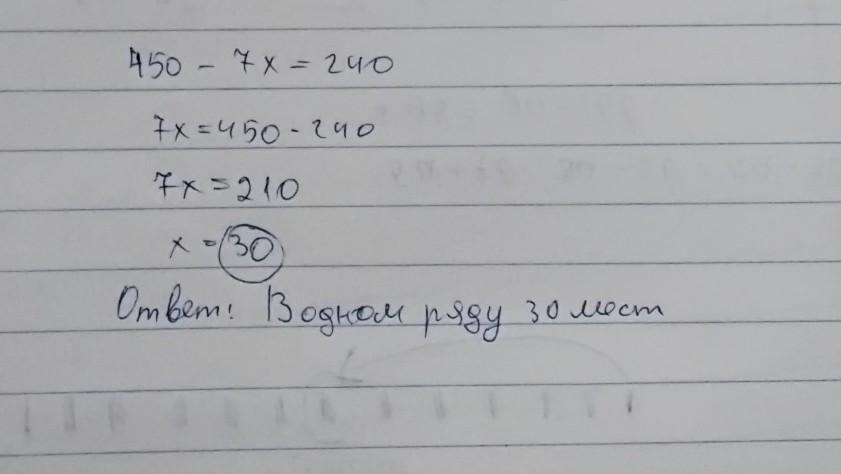 450 - 7x = 240
7x = 450 - 240
7x = 210
x = 30
Ответ: В одном ряду 30 мест